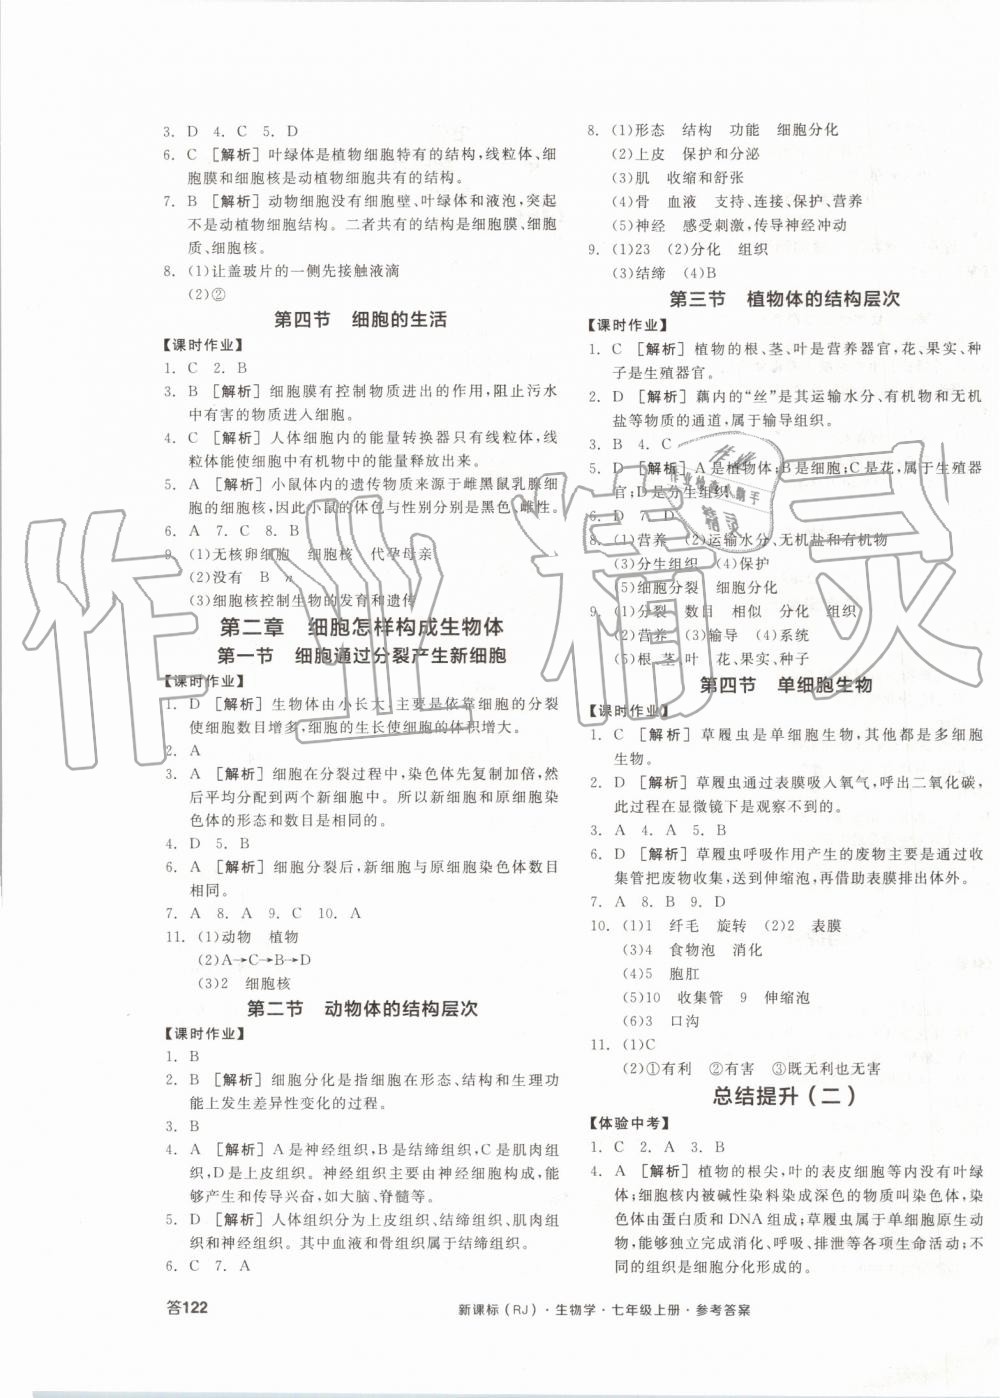 3. D 4. C 5. D
6. C ［解析］叶绿体是植物细胞特有的结构,线粒体、细
胞膜和细胞核是动植物细胞共有的结构。
7. B ［解析］动物细胞没有细胞壁、叶绿体和液泡,突起
不是动植物细胞结构。二者共有的结构是细胞膜、细胞
质、细胞核。
8. (1)让盖玻片的一侧先接触液滴
(2)②
第四节 细胞的生活
【课时作业】
1. C 2. B
3. B ［解析］细胞膜有控制物质进出的作用,阻止污水
中有害的物质进入细胞。
4. C ［解析］人体细胞内的能量转换器只有线粒体,线
粒体能使细胞中有机物中的能量释放出来。
5. A ［解析］小鼠体内的遗传物质来源于雌黑鼠乳腺细
胞的细胞核,因此小鼠的体色与性别分别是黑色、雌性。
6. A 7. C 8. B
9. (1)无核卵细胞 细胞核 代孕母亲
(2)没有 B n
(3)细胞核控制生物的发育和遗传
第二章 细胞怎样构成生物体
第一节 细胞通过分裂产生新细胞
【课时作业】
1. D ［解析］生物体由小长大,主要是依靠细胞的分裂
使细胞数目增多,细胞的生长使细胞的体积增大。
2. A
3. A ［解析］细胞在分裂过程中,染色体先复制加倍,然
后平均分配到两个新细胞中。所以新细胞和原细胞染
色体的形态和数目是相同的。
4. D 5. B
6. A ［解析］细胞分裂后,新细胞与原细胞染色体数目
相同。
7. A 8. A 9. C 10. A
11. (1)动物 植物
(2)A→C→B→D
(3)2 细胞核
第二节 动物体的结构层次
【课时作业】
1. B
2. B ［解析］细胞分化是指细胞在形态、结构和生理功
能上发生差异性变化的过程。
3. B
4. A ［解析］A是神经组织,B是结缔组织,C是肌肉组
织,D是上皮组织。神经组织主要由神经细胞构成,能
够产生和传导兴奋,如大脑、脊髓等。
5. D ［解析］人体组织分为上皮组织、结缔组织、肌肉组
织和神经组织。其中血液和骨组织属于结缔组织。
6. C 7. A
8. (1)形态 结构 功能 细胞分化
(2)上皮 保护和分泌
(3)肌 收缩和舒张
(4)骨 血液 支持、连接、保护、营养
(5)神经 感受刺激,传导神经冲动
9. (1)23 (2)分化 组织
(3)结缔 (4)B
第三节 植物体的结构层次
【课时作业】
1. C ［解析］植物的根、茎、叶是营养器官,花、果实、种
子是生殖器官。
2. D ［解析］藕内的“丝”是其运输水分、有机物和无机
盐等物质的通道,属于输导组织。
3. B 4. C
5. D ［解析］A是植物体;B是细胞;C是花,属于生殖器
官;D是分生组织。
6. D 7. D
8. (1)营养 (2)运输水分、无机盐和有机物
(3)分生组织 (4)保护
(5)细胞分裂 细胞分化
9. (1)分裂 数目 相似 分化 组织
(2)营养 (3)输导 (4)系统
(5)根、茎、叶 花、果实、种子
第四节 单细胞生物
【课时作业】
1. C ［解析］草履虫是单细胞生物,其他都是多细胞
生物。
2. D ［解析］草履虫通过表膜吸入氧气,呼出二氧化碳,
此过程在显微镜下是观察不到的。
3. A 4. A 5. B
6. D ［解析］草履虫呼吸作用产生的废物主要是通过收
集管把废物收集,送到伸缩泡,再借助表膜排出体外。
7. A 8. B 9. D
10. (1)1 纤毛 旋转 (2)2 表膜
(3)4 食物泡 消化
(4)5 胞肛
(5)10 收集管 9 伸缩泡
(6)3 口沟
11. (1)C
(2)①有利 ②有害 ③既无利也无害
总结提升(二)
【体验中考】
1. C 2. A 3. B
4. A ［解析］植物的根尖,叶的表皮细胞等内没有叶绿
体;细胞核内被碱性染料染成深色的物质叫染色体,染
色体由蛋白质和DNA组成;草履虫属于单细胞原生动
物,能够独立完成消化、呼吸、排泄等各项生命活动;不
同的组织是细胞分化形成的。
答122
新课标(RJ)·生物学·七年级上册·参考答案
作业精灵
作业
精灵